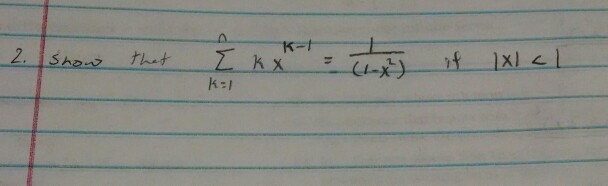 2. Show that \sum_{k=1}^{n} k x^{k-1} = \frac{1}{(1-x^2)} if |x| < 1